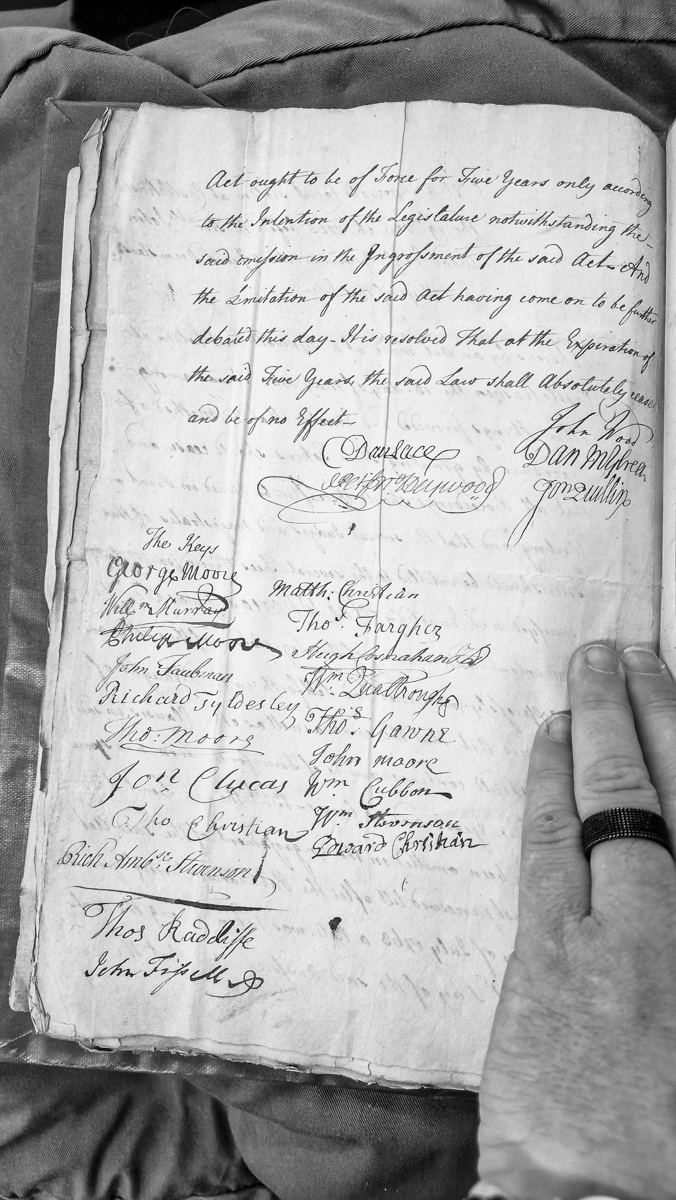 Act ought to be of Force for Five Years only according
to the Intention of the Legislature notwithstanding the
said omission in the Ingrossment of the said Act - And
the Limitation of the said Act having come on to be further
debated this day - It is resolved That at the Expiration of
the said Five Years, the said Law shall Absolutely cease
and be of no Effect -
John Wood
Dan Mylrea
The Keys
George Moore
Willm Murray
Philip Moore
John Taubman
Richard Tyldesley
Tho: Moore
Jon Clucas
Tho Christian
Rich Ambse Stevenson
Thos Radcliffe
John
Matth: Christian
Thos. Fargher
Hugh Cosnahan
Wm Qualtrough
Thos. Gawne
John Moore
Wm Cubbon
Wm Stevenson
Edward Christian